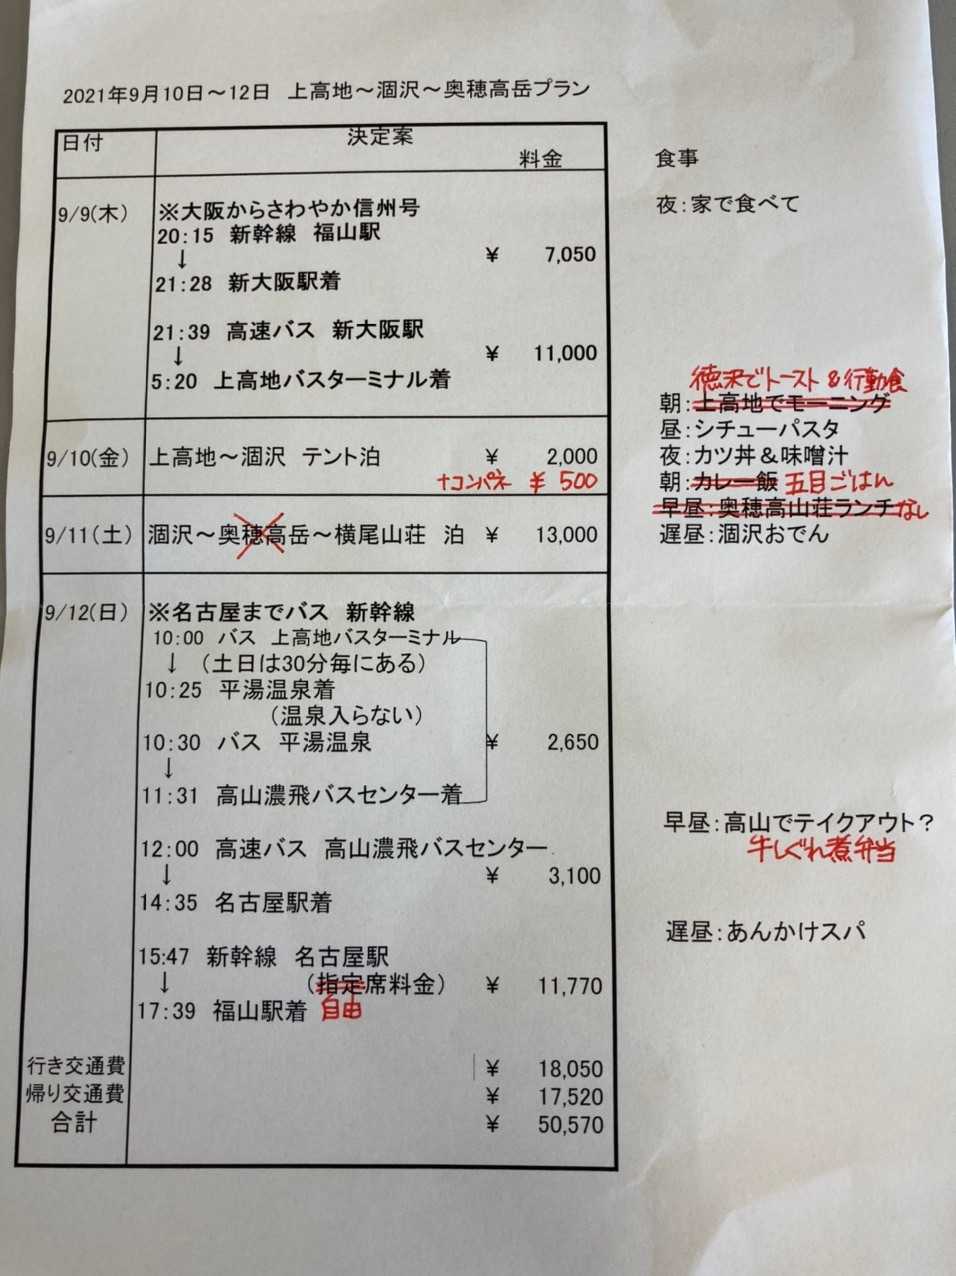 2021年9月10日～12日　上高地～涸沢～奥穂高岳プラン
日付　決定案
料金　食事
9/9(木)　※大阪からさわやか信州号　夜：家で食べて
20：15　新幹線　福山駅
↓　¥ 7,050
21：28　新大阪駅着
21：39　高速バス　新大阪駅
↓　¥ 11,000
5：20　上高地バスターミナル着
徳沢でトースト&行動食
朝：上高地でモーニング
昼：シチューパスタ
9/10(金)　上高地～涸沢　テント泊　¥ 2,000　夜：カツ丼＆味噌汁
+コンパネ ¥ 500　朝：カレー飯 五目ごはん
早昼：奥穂高山荘ランチ なし
9/11(土)　涸沢～奥穂高岳～横尾山荘　泊　¥ 13,000　遅昼：涸沢おでん
9/12(日)　※名古屋までバス　新幹線
10:00　バス　上高地バスターミナル
↓　（土日は30分毎にある）
10：25　平湯温泉着
（温泉入らない）
10：30　バス　平湯温泉　¥ 2,650
↓
11：31　高山濃飛バスセンター着
早昼：高山でテイクアウト？
12：00　高速バス　高山濃飛バスセンター　牛しぐれ煮弁当
↓　¥ 3,100
14：35　名古屋駅着
遅昼：あんかけスパ
15:47　新幹線　名古屋駅
↓　（指定席料金）　¥ 11,770
17：39　福山駅着 自由
行き交通費　¥ 18,050
帰り交通費　¥ 17,520
合計　¥ 50,570